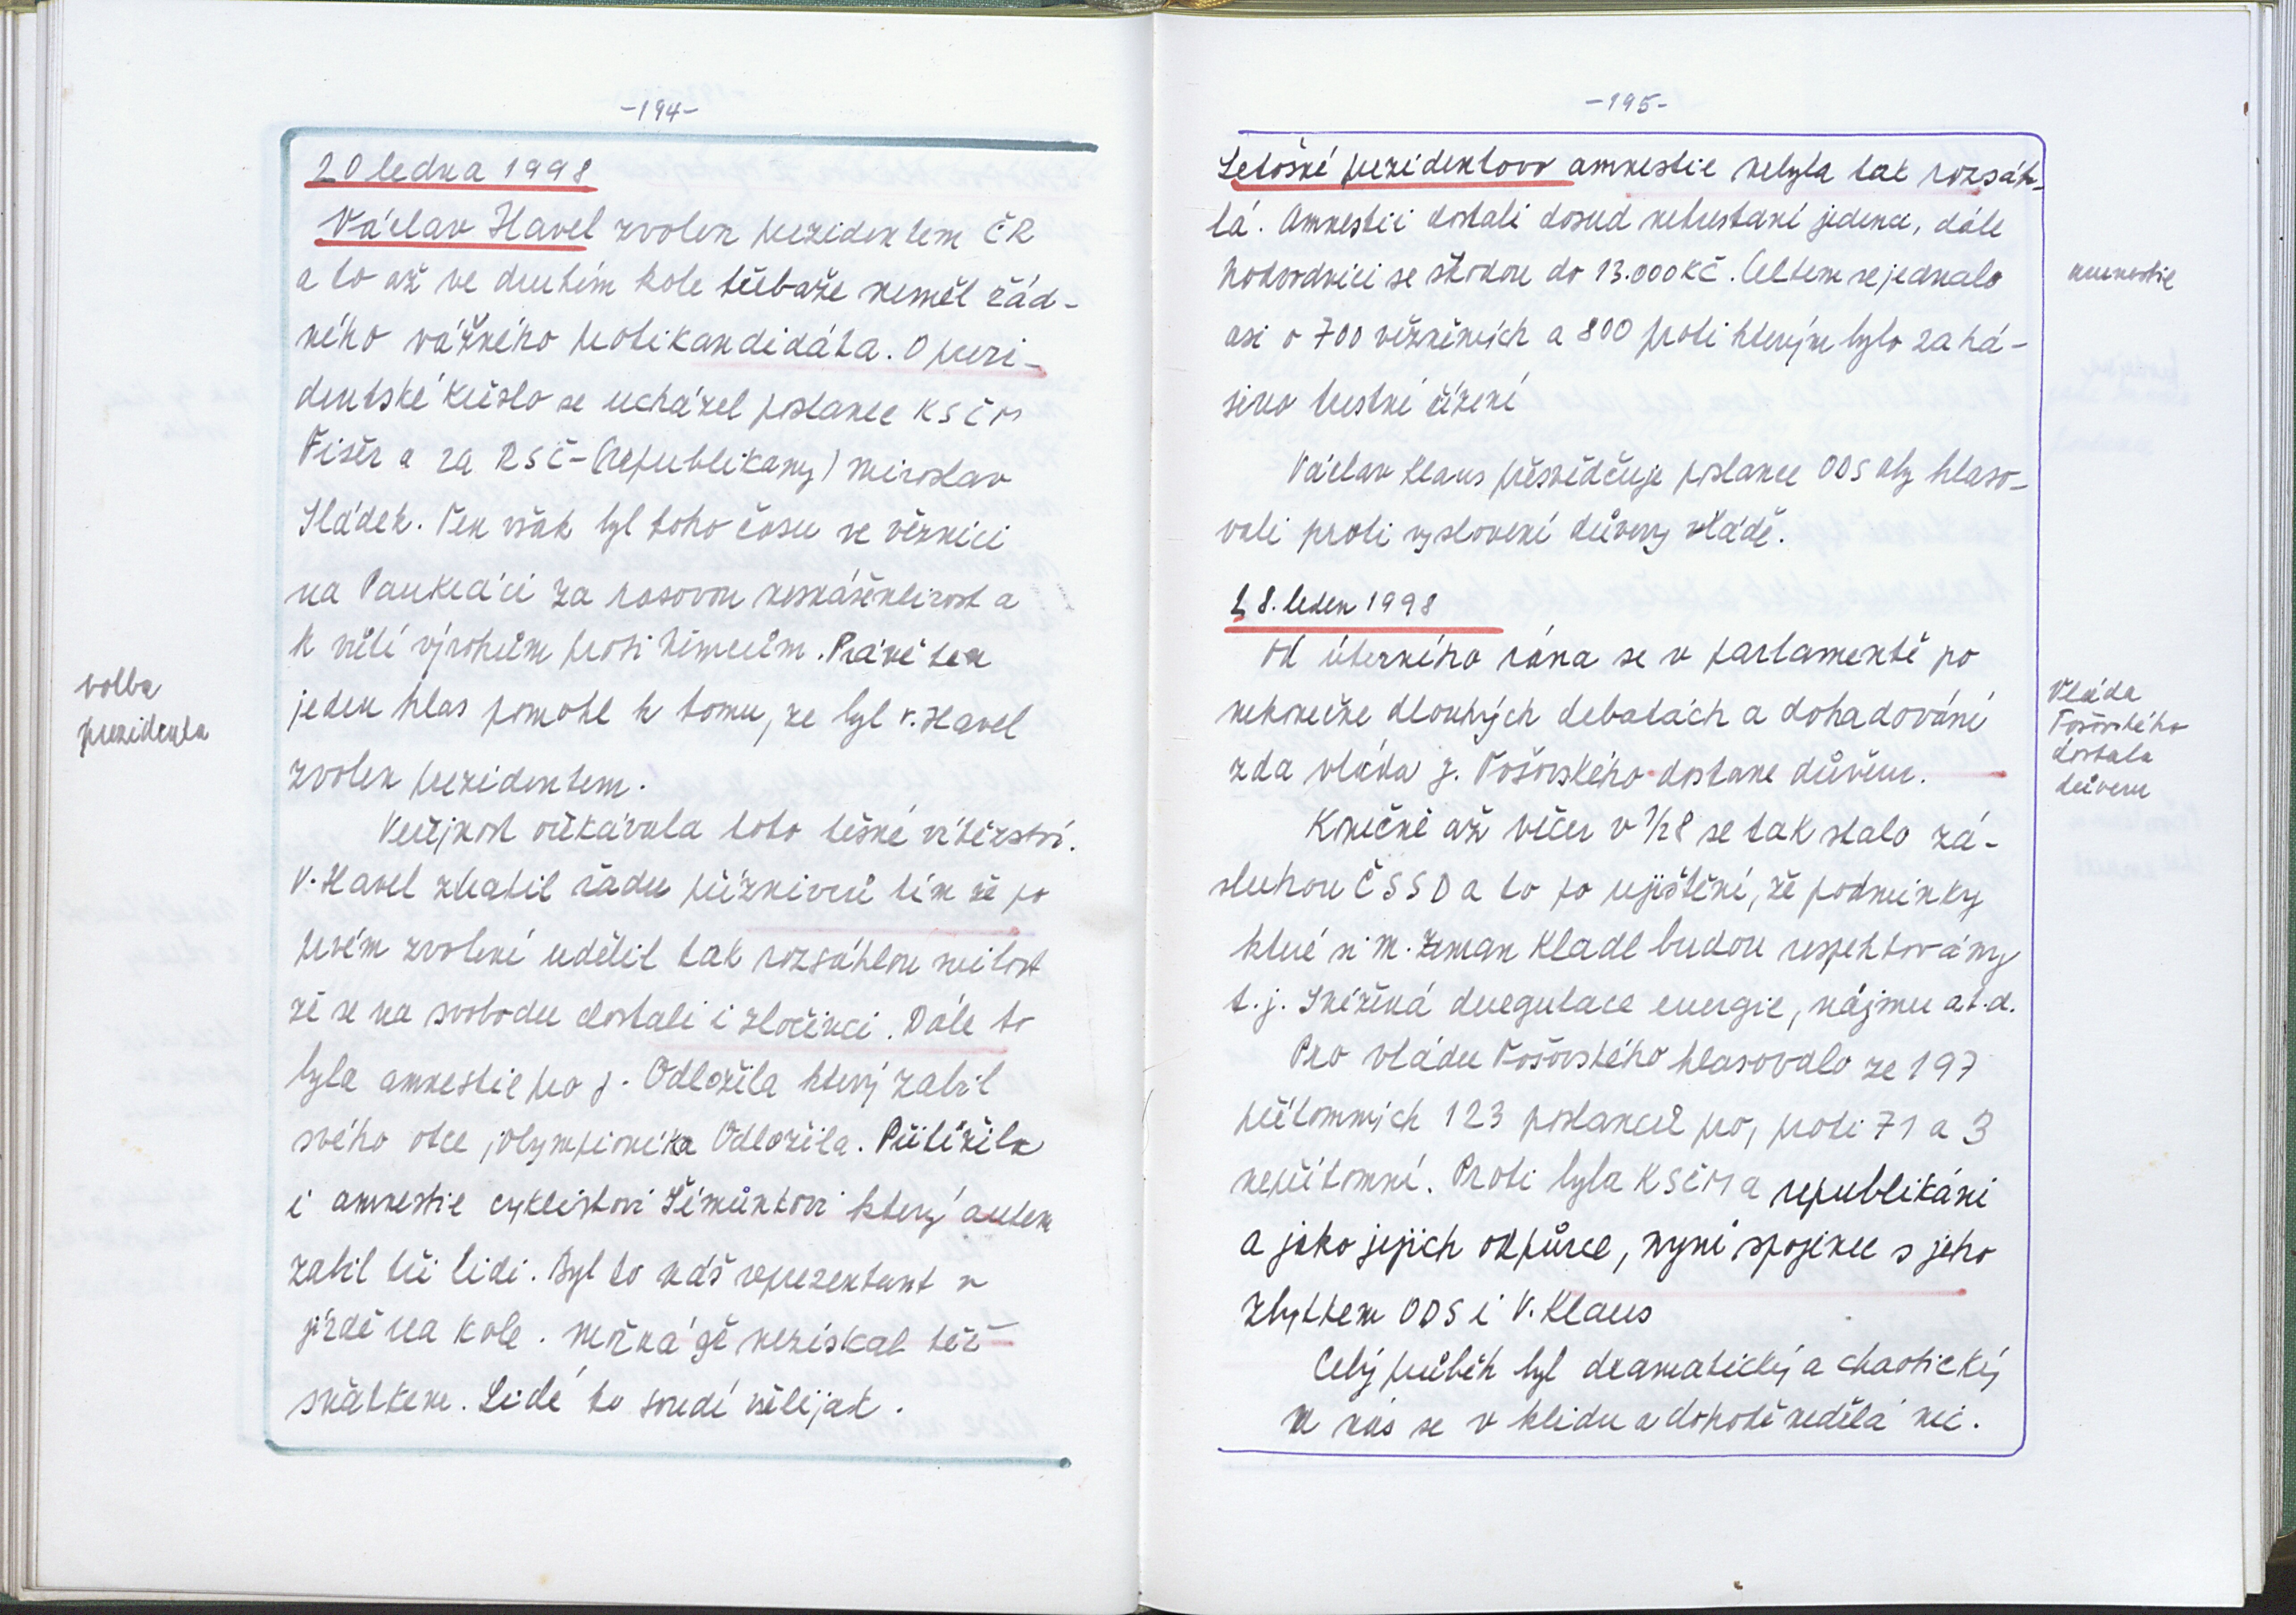 -194-
20 ledna 1998
Václav Havel zvolen prezidentem ČR
a to až ve druhém kole třebaže neměl žád-
ného vážného protikandidáta. O prezi-
dentské křeslo se ucházel poslanec KSČM
Fišer a za RSČ-(Republikany) Miroslav
Sládek. Ten však byl toho času ve věznici
na Pankráci za rasovou nesnášenlivost a
k vůli výrokům proti Němcům. Právě ten
jeden hlas pomohl k tomu, že byl V. Havel
zvolen prezidentem.
Veřejnost očkávala toto těsné vítězství.
V. Havel ztratil řadu příznivců tím že po
prvém zvolení udělil tak rozsáhlou milost
že se na svobodu dostali i zločinci. Dále to
byla amnestie pro J. Odložila který zabil
svého otce, olympionika Odložila. Přitížila
i amnestie cyklistovi Šimůnkovi který autem
zabil tři lidi. Byl to náš reprezentant v
jízdě na kole. Možná že nezískal též
sňatkem. Lidé to soudí všelijak.
volba
prezidenta
-195-
Letošní prezidentova amnestie nebyla tak rozsáh-
lá. Amnestii dostali dosud netrestaní jedinci, dále
hodvodníci se škodou do 13.000 Kč. Celkem se jednalo
asi o 700 vězněných a 800 proti kterým bylo zahá-
jeno trestní řízení
Václav Klaus přesvědčuje poslance ODS aby hlaso-
vali proti vyslovení důvery vládě.
28. leden 1998
Od úterního rána se v parlamentě po
nekonečne dlouhých debatách a dohadování
zda vláda J. Tošovského dostane důvěru.
Konečně až večer v 1/28 se tak stalo zá-
sluhou ČSSD a to po ujištění, že podmínky
které si M. Zeman kladl budou respektovány
t.j. Snížená deregulace energie, nájmu a.t.d.
Pro vládu Tošovského hlasovalo ze 197
přítomných 123 poslanců pro, proti 71 a 3
nepřítomní. Proti byla KSČM a republikáni
a jako jejich odpůrce, nyní spojenec s jeho
zbytkem ODS i V. Klaus
Celý průběh byl dramatický a chaotický
U nás se v klidu a dohodě nedělá nic.
amnestie
Vláda
Tošovského
dostala
důveru